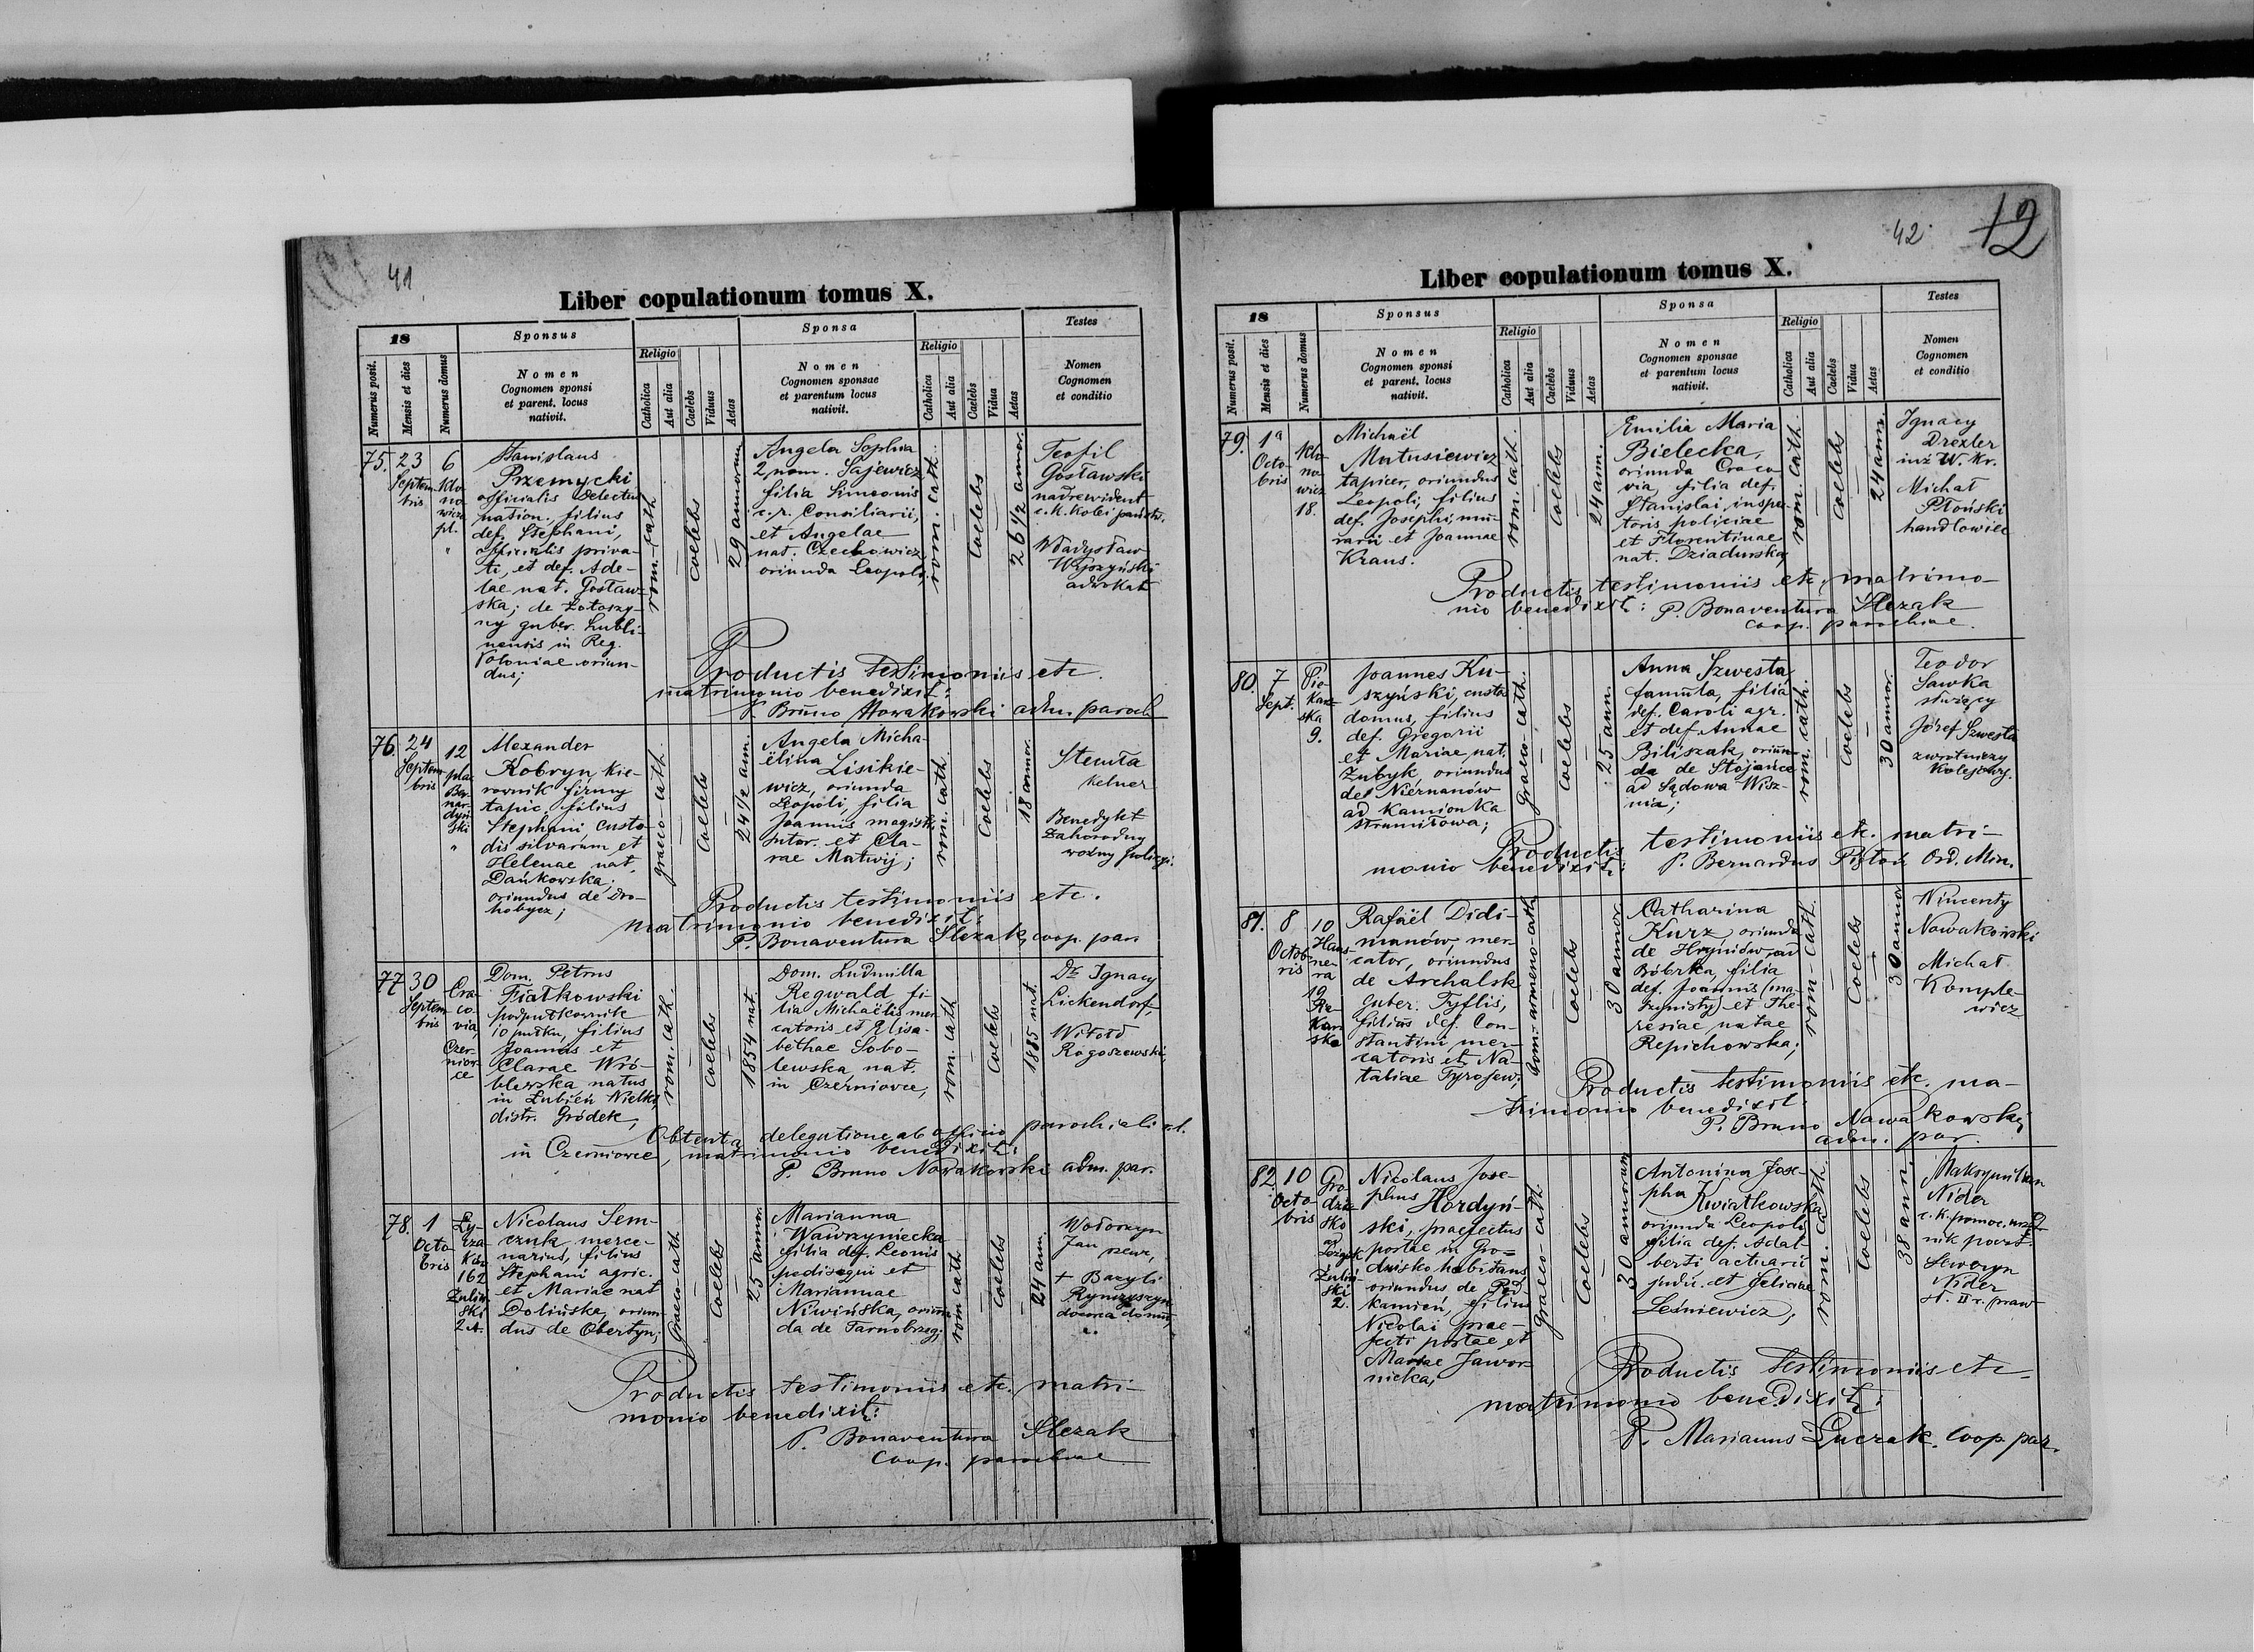 41
Liber copulationum tomus X.
18
Sponsus
Sponsa
Testes
Numerus posit.
Mensis et dies
Numerus domus
Nomen
Cognomen sponsi
et parent. locus
nativit.
Religio
Catholica
Aut alia
Caelebs
Viduus
Aetas
Nomen
Cognomen sponsae
et parentum locus
nativit.
Religio
Catholica
Aut alia
Caelebs
Vidua
Aetas
Nomen
Cognomen
et conditio
75.
23
Septem
bris
6
Klo
no
wicz
pl.
Stanislaus
Przemycki
officialis delectus
nation. filius
def. Stephani,
officialis priva-
ti, et def. Ade-
lae nat. Gostaw-
ska; de
ny guber. Lubli-
nensis in Reg.
Poloniae oriun-
dus;
rom. cath
coelebs
29 annorum
Angela Sophia
2 nom. Sajewicz
filia Simeonis
c. r. Consiliarii,
et Angelae
nat. Czechowicz
oriunda Leopoli,
rom. cath.
Coelebs
26 1/2 annor.
Teofil
Gostawski
nadrewident
c. k. kolei państw.
Władysław
Wyszyński
adwokat
Productis testimoniis etc.
matrimonio benedixit:
P. Bruno Nowakowski adm. paroch
76.
24
Septem
bris
12
pla.
Ber
nar-
dyń
ski
"
Alexander
Kobryn, kie-
rownik firmy
tapic. filius
Stephani custo-
dis silvarum et
Helenae nat.
Dańkowska;
oriundus de Dro-
hobycz;
graeco-cath.
Coelebs
24 1/2 ann.
Angela Micha-
ëlina Lisikie-
wicz, oriunda
Leopoli, filia
Joannis magistri
sutor. et Cla-
rae Matwij;
rom. cath.
Coelebs
18 annor.
Stemła
kelner
Benedykt
Zahorodny
woźny policyi.
Productis testimoniis etc.
matrimonio benedixit:
P. Bonaventura Slezak, coop. par.
77
30
Septem
bris
Cra-
co-
via,
Czer-
niow-
ce
Dom. Petrus
Fiałkowski
podpułkownik
10 pułku, filius
Joannis et
Clarae Wró-
blewska natus
in Lubień Wielki,
distr. Gródek,
rom. cath.
coelebs
1854 nat.
Dom. Ludmilla
Regwald fi-
lia Michaëlis mer-
catoris et Elisa-
bethae Sobo-
lewska, nat.
in Czerniowce,
rom. cath
Coelebs
1885 nat.
Dr Ignacy
Lickendorf,
Witołd
Rogoszewski,
Obtenta delegatione ab officio parochiali r.l.
in Czerniowce, matrimonio benedixit:
P. Bruno Nowakowski adm. par.
78.
1
Octo
bris
Ły-
cza
kow
162
Zuliń
ski
2A.
Nicolaus Sem-
czuk merce-
narius, filius
Stephani agric.
et Mariae nat
Dolińska, oriun-
dus de Obertyn;
Graeco-cath
Coelebs
25 annor.
Marianna
Wawryniecka
filia def. Leonis
pedisequi et
Mariannae
Niwińska, oriun-
da de Tarnobrzeg;
rom. cath.
Coelebs
24 ann.
Wołoszyn
Jan szewc,
+ Bazyli
Rymszyszyn
dozorca domu,
Productis testimoniis etc. matri-
monio benedixit:
P. Bonaventura Slezak
Coop. parochiae
42.
12
Liber copulationum tomus X.
18
Sponsus
Sponsa
Testes
Numerus posit.
Mensis et dies
Numerus domus
Nomen
Cognomen sponsi
et parent. locus
nativit.
Religio
Catholica
Aut alia
Caelebs
Viduus
Aetas
Nomen
Cognomen sponsae
et parentum locus
nativit.
Religio
Catholica
Aut alia
Caelebs
Vidua
Aetas
Nomen
Cognomen
et conditio
79.
1a
Octo-
bris
Klo-
no-
wicz
18.
Michaël
Matusiewicz
tapicer, oriundus
Leopoli, filius
def. Josephi, mu-
rarii et Joannae
Kraus.
rom. cath.
Coelebs
24 ann.
Emilia Maria
Bielecka,
oriunda Craco
via, filia def.
Stanislai, inspec-
toris policiae
et Florentinae
nat. Dziadurska,
rom. cath.
Coelebs
24 ann.
Ignacy
Drexler
inż W. Kr.
Michał
Płoński
handlowiec
Productis testimoniis etc. matrimo-
nio benedixit: P. Bonaventura Slezak
coop. parochiae.
80.
7
Sept.
Pie-
kar-
ska
9.
Joannes Ku-
szyński, custos
domus, filius
def. Gregorii
et Mariae nat.
Zubyk, oriundus
de Niernanów
ad Kamionka
strumiłowa;
Graeco-cath.
Coelebs
25 ann.
Anna Szwesta
famula, filia
def. Caroli agr.
et def. Annae
Biliszak, oriun-
da de Stojańce
ad Sądowa Wisz-
nia;
rom. cath.
Coelebs
30 annor.
Teodor
Sawka
służący
Józef Szwesta
zwrotniczy
kolejowy.
Productis testimoniis etc. matri-
monio benedixit: P. Bernardus Ord. Min.
81.
8
Octob-
ris
10
Haus-
ne-
ra
19
Pie-
kar-
ska
Rafaël Didi-
manów, mer-
cator, oriundus
de Archalsk
guber. Tyflis,
filius def. Con-
stantini mer-
catoris et Na-
taliae Tyrosew;
armeno-cath
Coelebs
30 annor.
Catharina
Kurz, oriunda
de Hryniów ad
Bóbrka, filia
def. Joannis (ma-
szynisty) et The-
resiae natae
Repichowska;
rom-cath.
Coelebs
30 annor
Wincenty
Nowakowski
Michał
Komple-
wicz
Productis testimoniis etc. ma-
trimonio benedixit
P. Bruno Nowakowski,
adm. par.
82.
10
Octo-
bris
Gro-
dzi-
sko
Żuliń-
ski
2.
Nicolaus Jose-
phus Hordyń-
ski, praefectus
portae in Gro-
dzisko habitans
oriundus de Pod
kamień, filius
Nicolai prae-
fecti portae et
Mariae Jawor-
nicka,
graeco-cath.
Coelebs
30 annorum
Antonina Jose-
pha Kwiatkowska
oriunda Leopoli,
filia def. Adal-
berti actuarii
judic. et Feliciae
Leśniewicz;
rom. cath.
Coelebs
38 ann.
Maksymilian
Nider
c. k. pomoc. urzęd-
nik powiat.
Seweryn
Nider
st. II r. praw
Productis testimoniis etc
matrimonio benedixit:
P. Marianus Luczak. Coop. par.